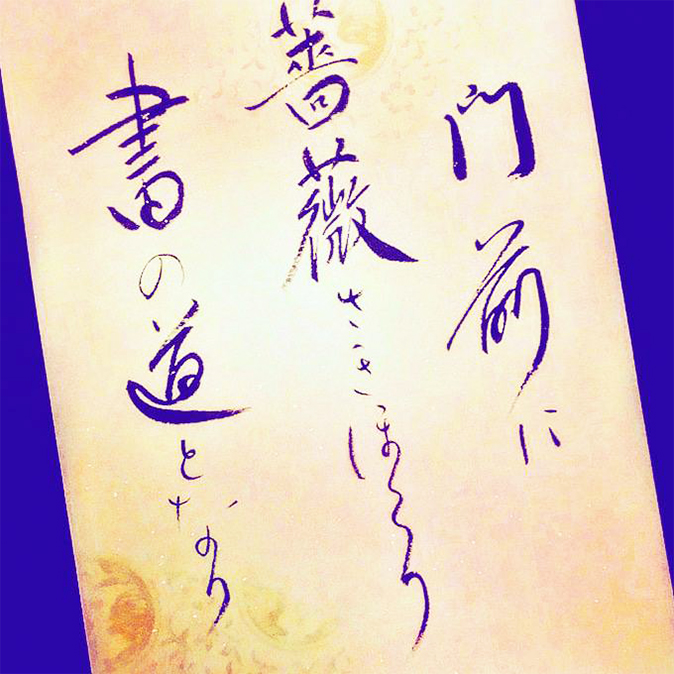 門前に
薔薇さきほこり
書の道となり